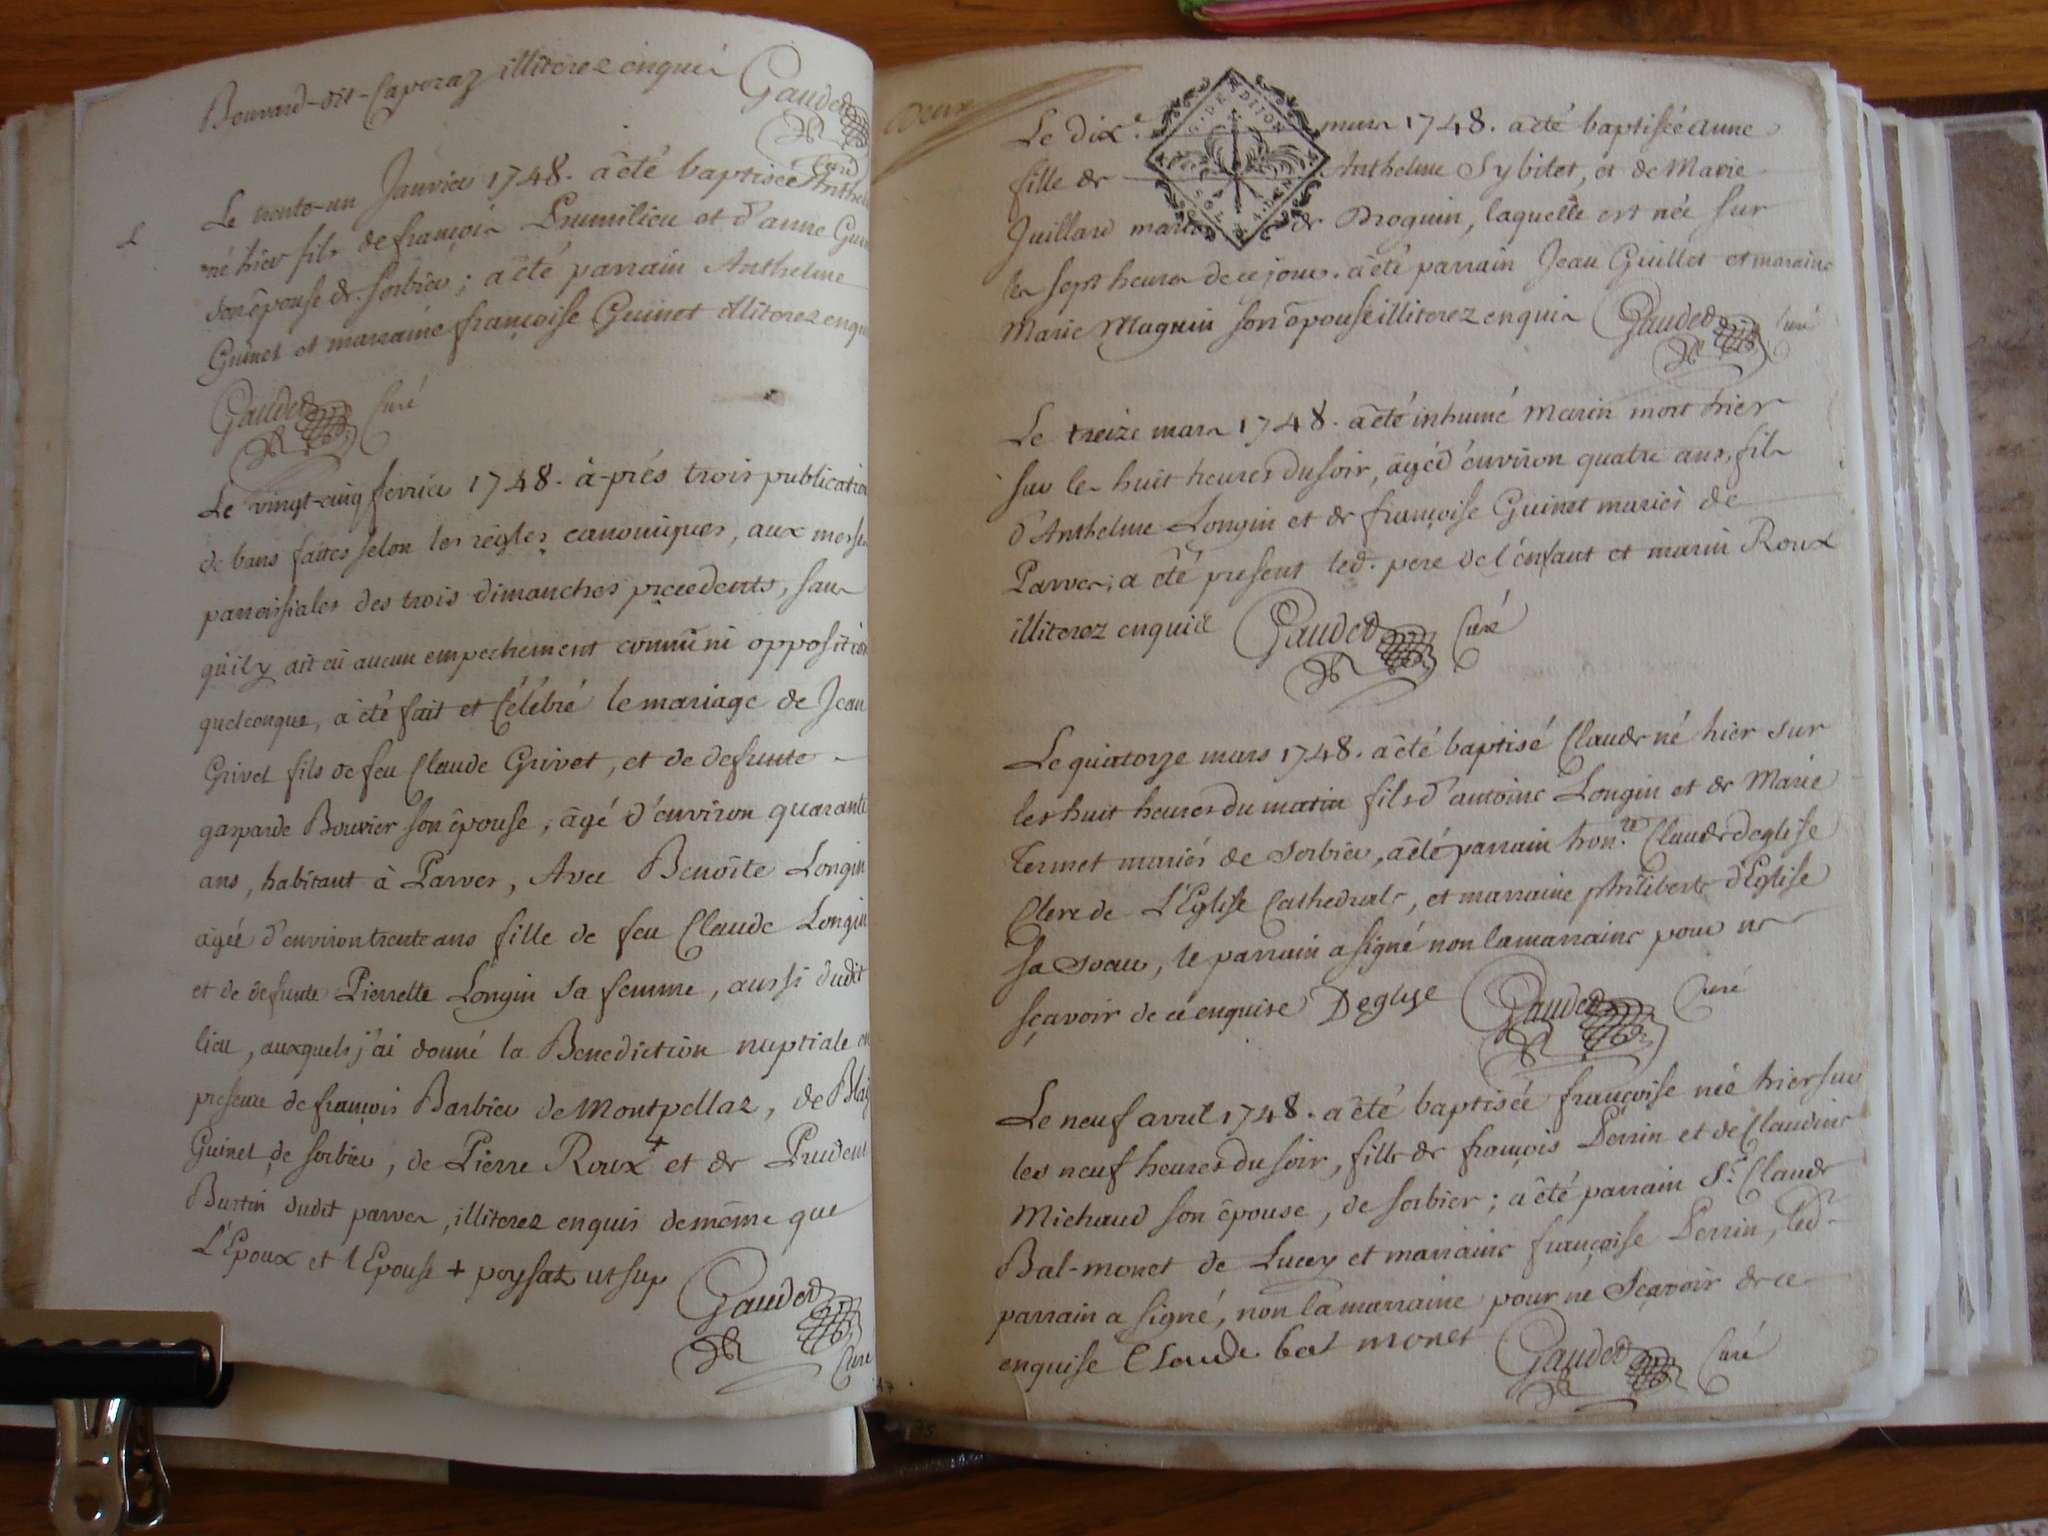 Bouvard-dit-Caporaz illiterez enquis Gaudet
Curé
Le trente-un Janvier 1748. a été baptisé Anthel
né hier fils de françois Prumilieu et d'anne Guin
son épouse de Sorbier; a été parrain Anthelme
Guinet et marraine françoise Guinet illiterez enqui
Gaudet Curé
Le vingt-cinq fevrier 1748. à-prés trois publication
de bans faites selon les règles canoniques, aux messes
parroissiales des trois dimanches precedents, sans
qu'il y ait eû aucun empechement connû ni opposition
quelconque, a été fait et Célébré le mariage de Jean
Grivet fils de feu Claude Grivet, et de defunte
gasparde Bouvier son épouse, âgé d'environ quarante
ans, habitant à Parves, Avec Benoîte Longin
agée d'environ trente ans fille de feu Claude Longin
et de defunte Pierrette Longin sa femme, aussi dudit
lieu, auxquels j'ai donné la Benediction nuptiale en
presence de françois Barbier de Montpellaz, de Blai
Guinet de sorbier, de Pierre Roux + et de Prudent
Burtin dudit parves, illiterez enquis de même que
L'Epoux et l'Epouse + poysat ut sup
Gaudet
Curé
deux
Le dix mars 1748. a été baptisée anne
fille de Anthelme Sybilet, et de Marie
Juillard mariés de Droguin, laquelle est née sur
les sept heures de ce jour. a été parrain Jean Guillet et maraine
Marie Magnin son épouse illiterez enquis Gaudet Curé
Le treize mars 1748. a été inhumé Marin mort hier
sur les huit heures du soir, âgé d'environ quatre ans, fils
d'Anthelme Longin et de françoise Guinet mariés de
Parves; a été present led. pere de l'enfant et marin Roux
illiterez enquis Gaudet Curé
Le quatorze mars 1748. a été baptisé Claude né hier sur
les huit heures du matin fils d'antoine Longin et de Marie
Termet mariés de Sorbier, a été parrain hon. Claude deglise
Clerc de L'Eglise Cathedrale, et marraine philiberte d'Eglise
sa soeur, le parrain a signé non la marraine pour ne
sçavoir de ce enquise Deglise Gaudet Curé
Le neuf avril 1748. a été baptisée françoise née hier sur
les neuf heures du soir, fille de françois Perrin et de Claudine
Michaud son épouse, de sorbier; a été parrain Sr. Claude
Bal-monet de Lucey et marraine françoise Perrin, led.
parrain a signé, non la marraine pour ne Sçavoir de ce
enquise Claude bal monet Gaudet Curé